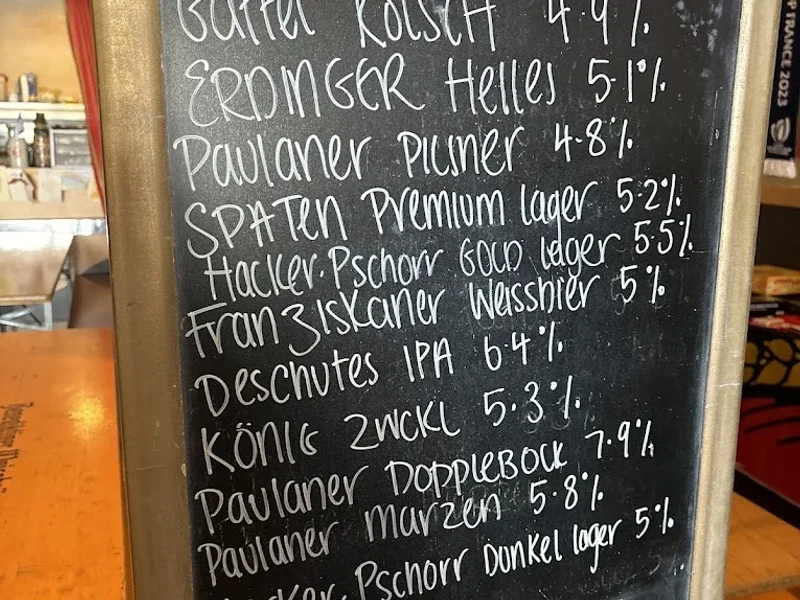 Gaffel KÖLSCH 4.9%
ERDINGER Helles 5.1%
Paulaner PILSNER 4.8%
SPATEN Premium lager 5.2%
Hacker-Pschorr GOLD lager 5.5%
Franziskaner Weissbier 5%
Deschutes IPA 6.4%
KÖNIG ZWCKL 5.3%
Paulaner DOPPLEBOCK 7.9%
Paulaner marzen 5.8%
Hacker-Pschorr Dunkel lager 5%
P FRANCE 2023